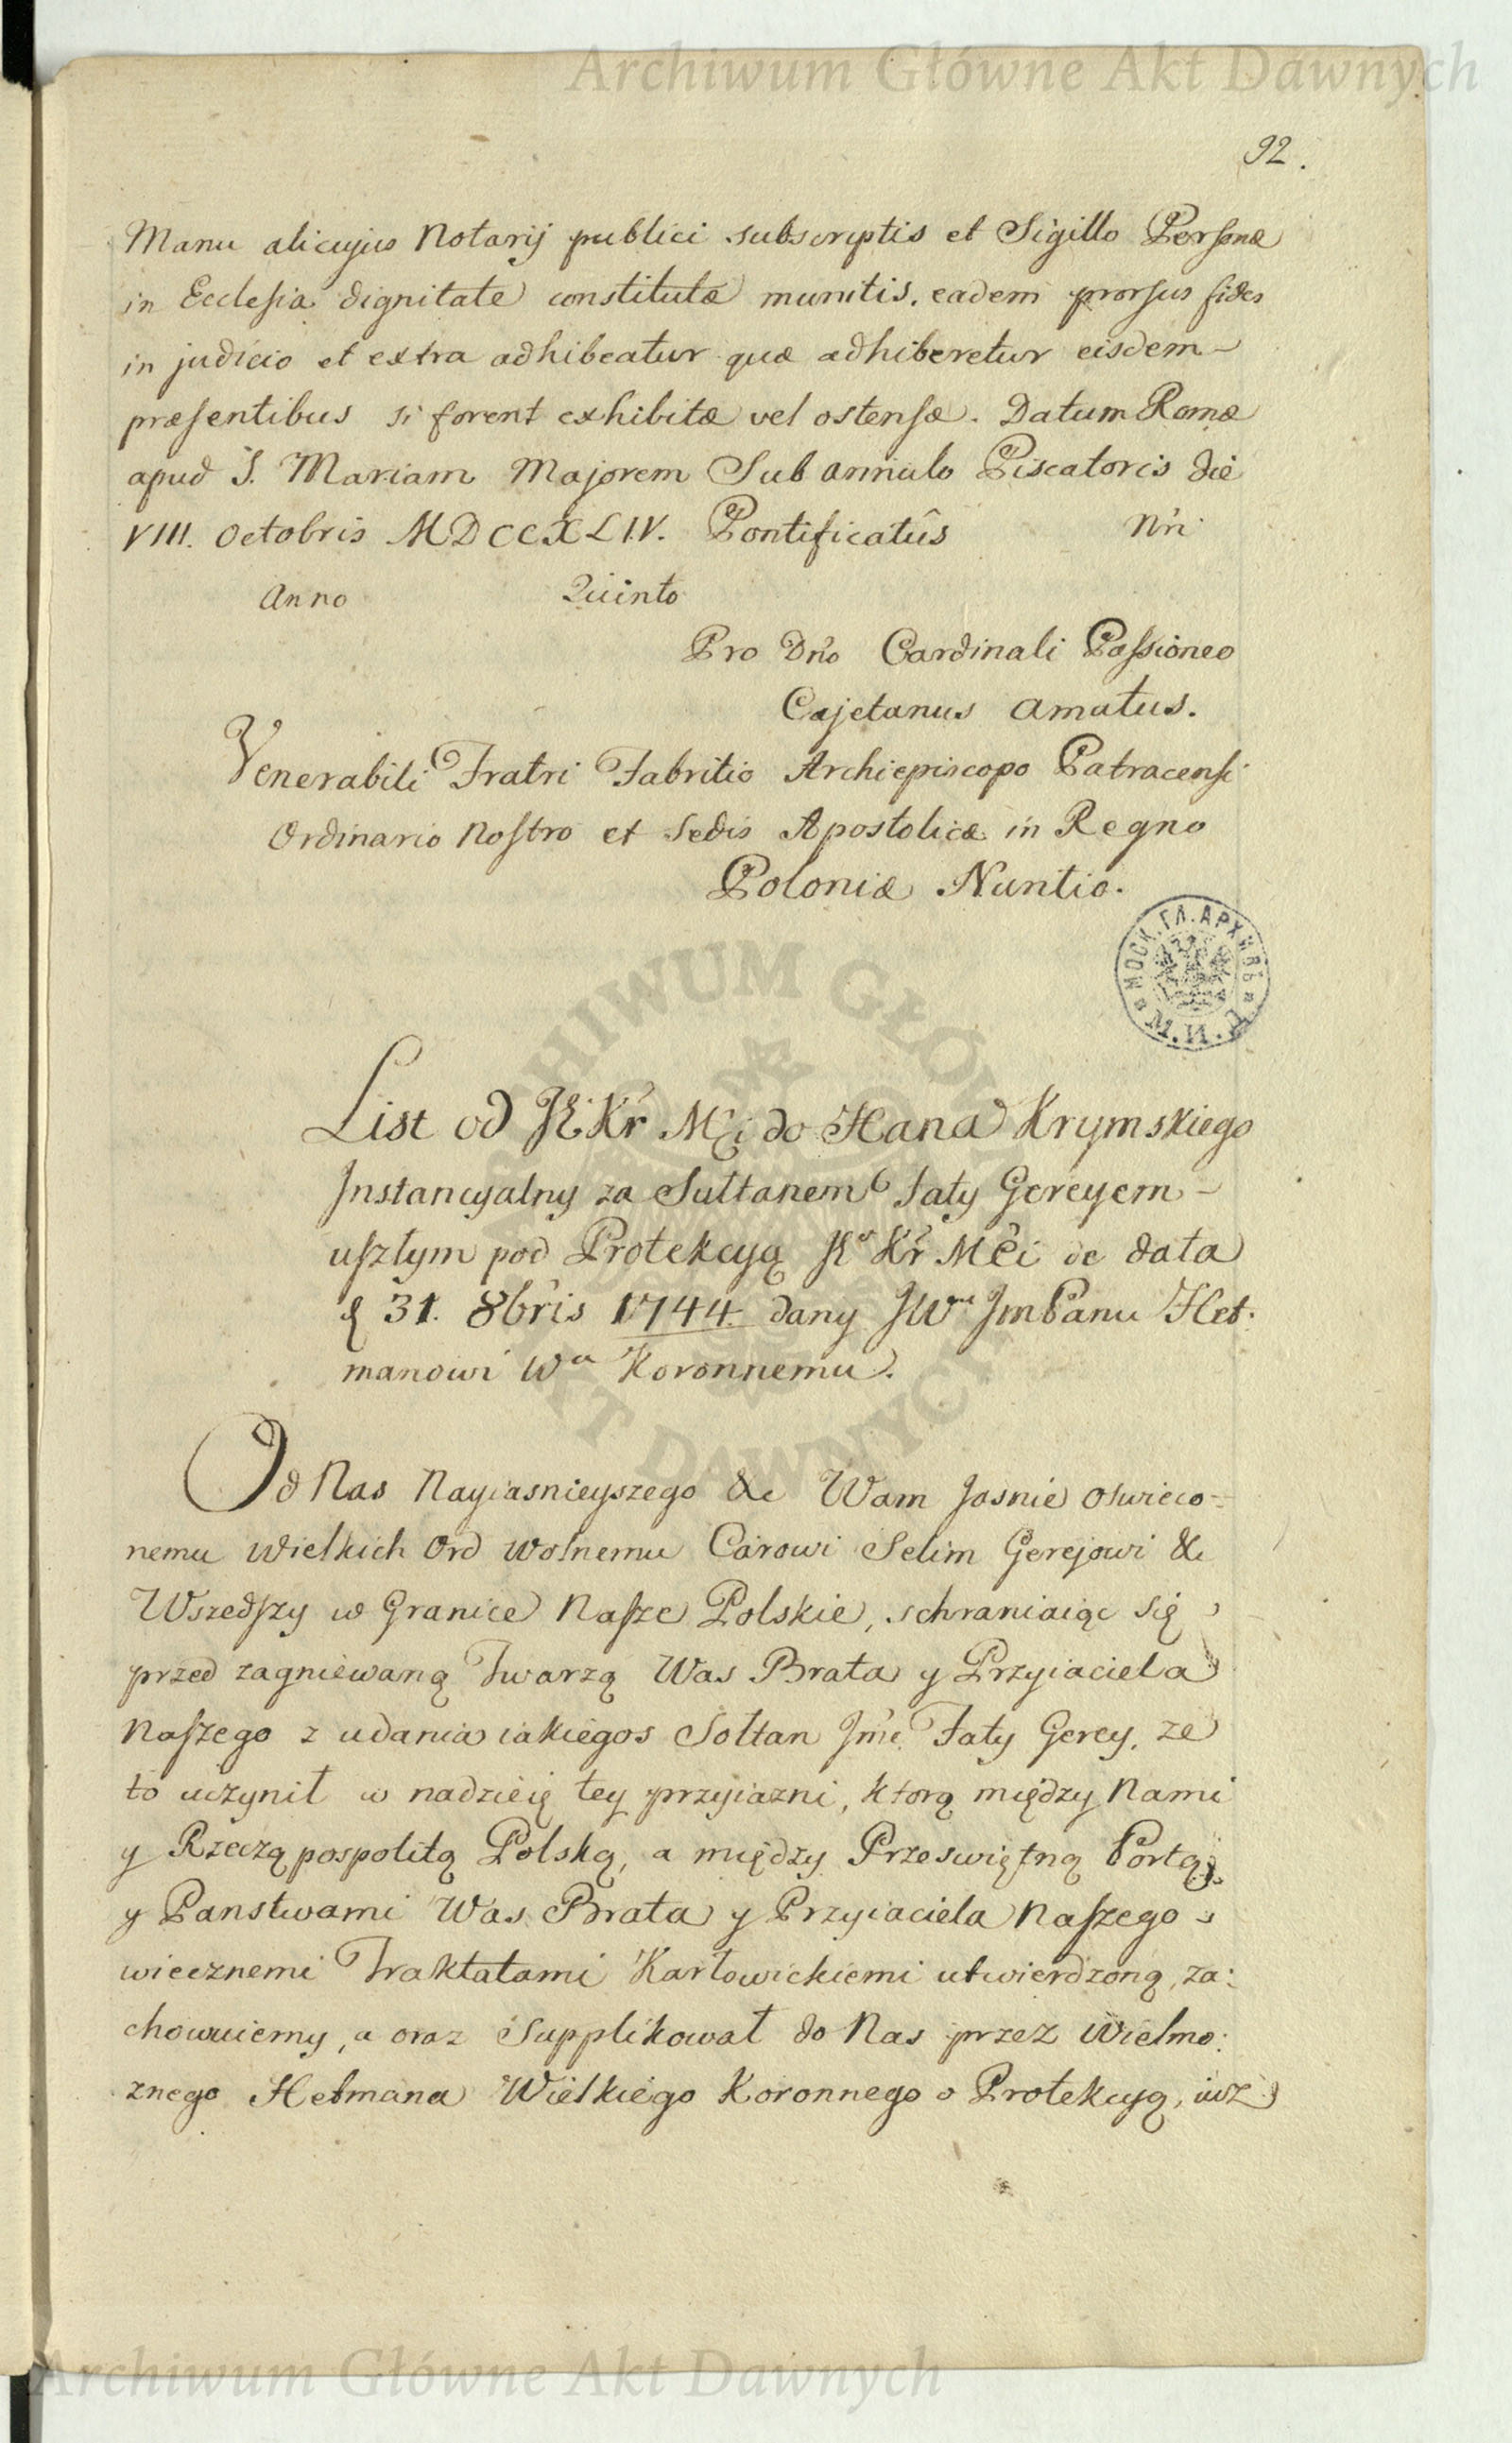 Archiwum Główne Akt Dawnych
92.
Manu alicujus Notarij publici subscriptis et Sigillo Personæ
in Ecclesia dignitate constitutæ munitis, eadem prorsus fides
in judicio et extra adhibeatur quæ adhiberetur eisdem
præsentibus si forent exhibitæ vel ostensæ. Datum Romæ
apud S. Mariam Majorem Sub annulo Piscatoris die
VIII. Octobris MDCCXLIV. Pontificatûs Nri
Anno Quinto
Pro Dno Cardinali Passioneo
Cajetanus Amatus.
Venerabili Fratri Fabritio Archiepiscopo Patracensi
Ordinario Nostro et Sedis Apostolicæ in Regno
Poloniæ Nuntio.
МОСК. ГЛ. АРХИВЪ
М.И.Д.
List od JKr Mci do Hana Krymskiego
Instancyalny za Sułtanem Faty Gereyem
uszłym pod Protekcyą JKr Mci de data
d 31. 8bris 1744. dany JWmu JmPanu Het-
manowi Wu Koronnemu.
Od Nas Nayiasnieyszego &c Wam Jasnie Oswieco-
nemu Wielkich Ord Wolnemu Carowi Selim Gerejowi &c
Wszedszy w Granice Nasze Polskie, schraniaiąc się
przed zagniewaną Twarzą Was Brata y Przyiaciela
Naszego z udania iakiegos Sołtan Jmć Faty Gerey, ze
to uczynił w nadzieię tey przyiazni, ktorą między Nami
y Rzecząpospolitą Polską, a między Przeswiętną Portą
y Panstwami Was Brata y Przyiaciela Naszego
wiecznemi Traktatami Karłowickiemi utwierdzoną, za:
chowuiemy, a oraz Supplikował do Nas przez Wielmo:
znego Hetmana Wielkiego Koronnego o Protekcyą, iuz
Archiwum Główne Akt Dawnych